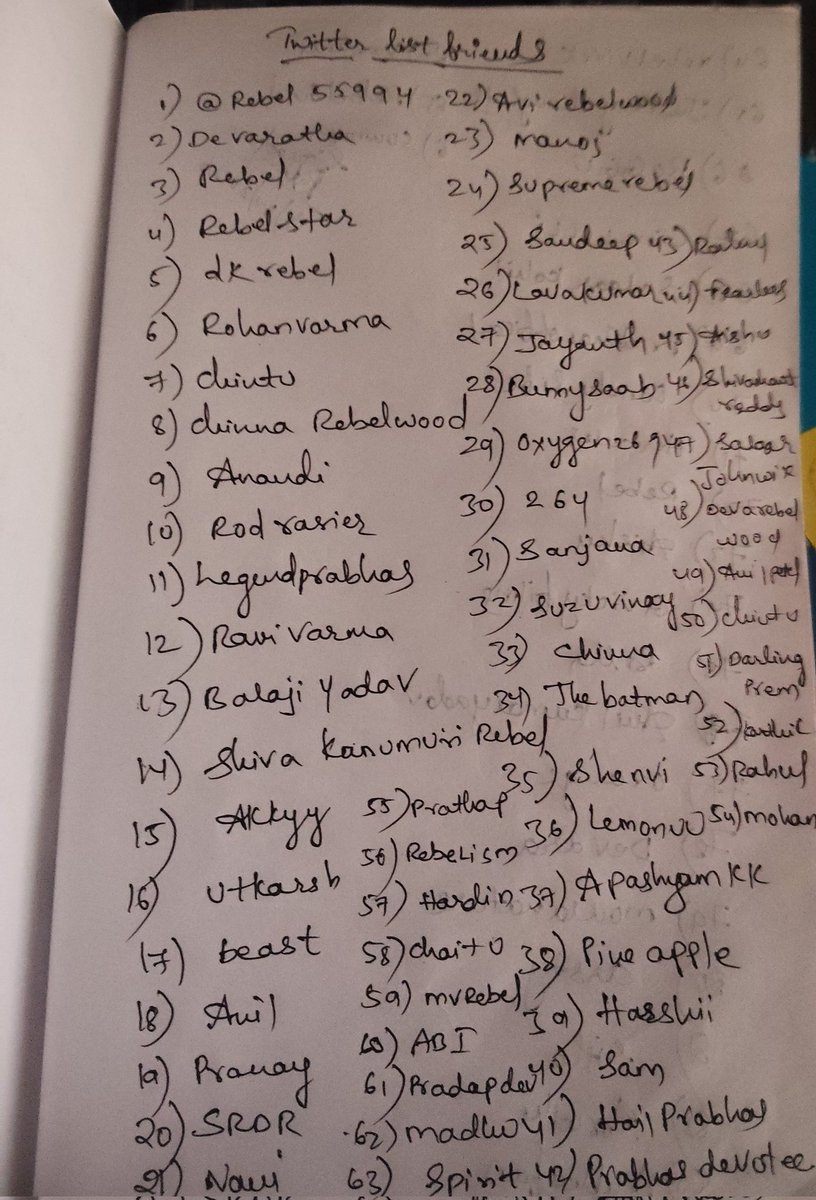 Twitter list friends
1) @Rebel 55994
2) Devaratha
3) Rebel
4) Rebelstar
5) dk rebel
6) Rohanvarma
7) chintu
8) chinna Rebelwood
9) Anandi
10) Rod rasier
11) Legendprabhas
12) Ravi varma
13) Balaji Yadav
14) Shiva Kanumuri Rebel
15) Akkyy
16) Utkarsh
17) beast
18) Anil
19) Pranay
20) SRDR
21) Navi
22) Avi rebelwood
23) Manoj
24) Supreme rebel
25) Sandeep
26) Lavakumar
27) Jayanth
28) Bunny saab
29) Oxygen269
30) 264
31) Sanjana
32) Suzuvinay
33) Chinna
34) The batman
35) Shenvi
36) Lemonuu
37) Apashyam KK
38) Pine apple
39) Hasshii
40) Sam
41) Hail Prabhas
42) Prabhas devotee
43)
44) Fearless
45) Aishu
46) Shivashant
reddy
47) Salaar
Johnwix
48) Devarebel
wood
49) Anil
50) chintu
51) Darling
Prem
52) karthik
53) Rahul
54) mohan
55) Prathap
56) Rebelism
57) Hardin
58) chaitu
59) mvRebel
60) ABI
61) Pradap dev
62) madhu
63) Spirit